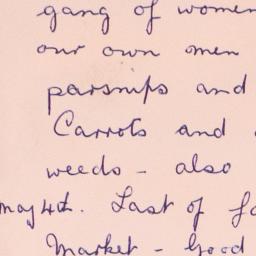 gang of women
our own men
parsnips and
Carrots and
weeds - also
May 4th. Last of
Market - Good